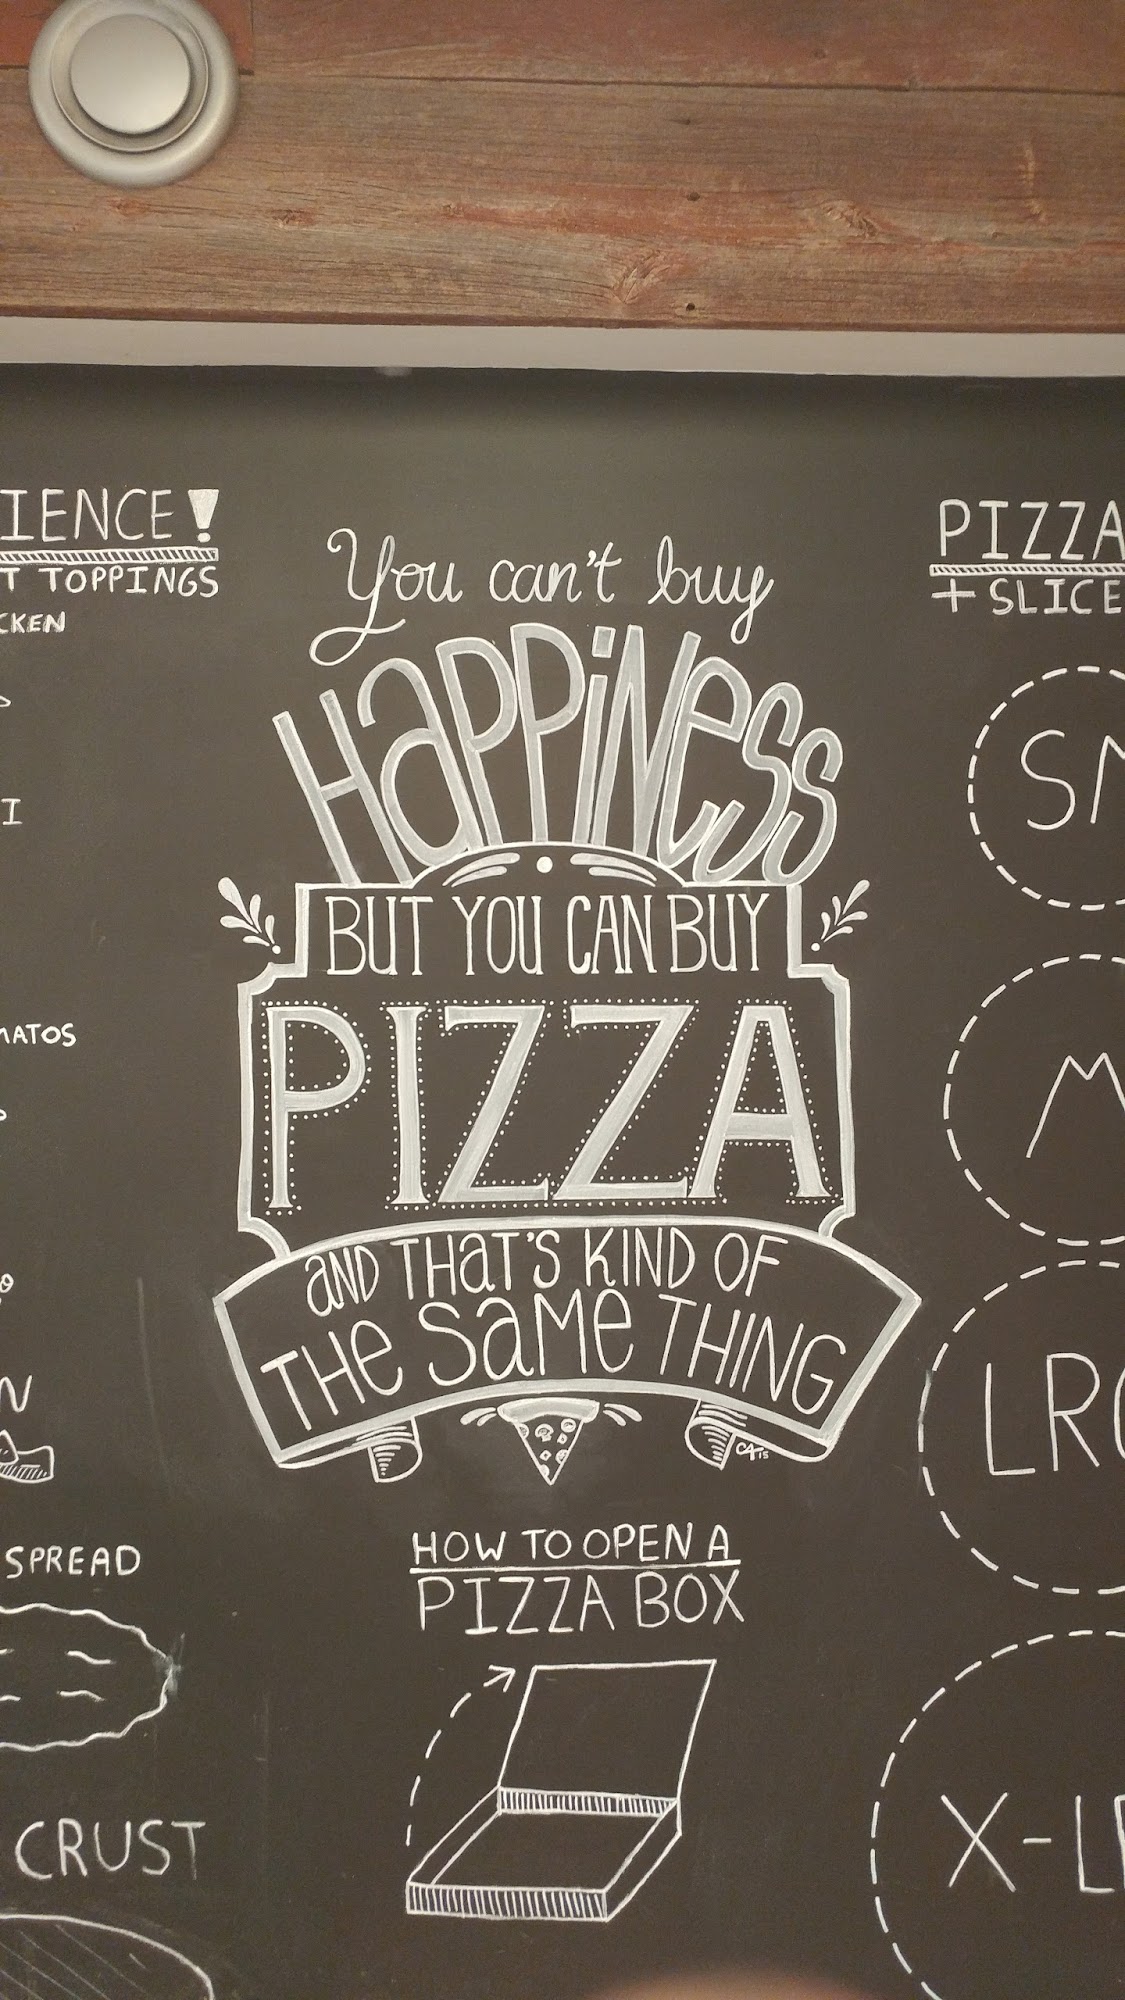 IENCE!
T TOPPINGS
CKEN
I
MATOS
N
SPREAD
CRUST
You can't buy
HaPPiNess
BUT YOU CAN BUY
PIZZA
aND THaT'S KIND OF
THe SaMe THING
CA 15
HOW TO OPEN A
PIZZA BOX
PIZZA
+ SLICE
SM
M
LRG
X-LR